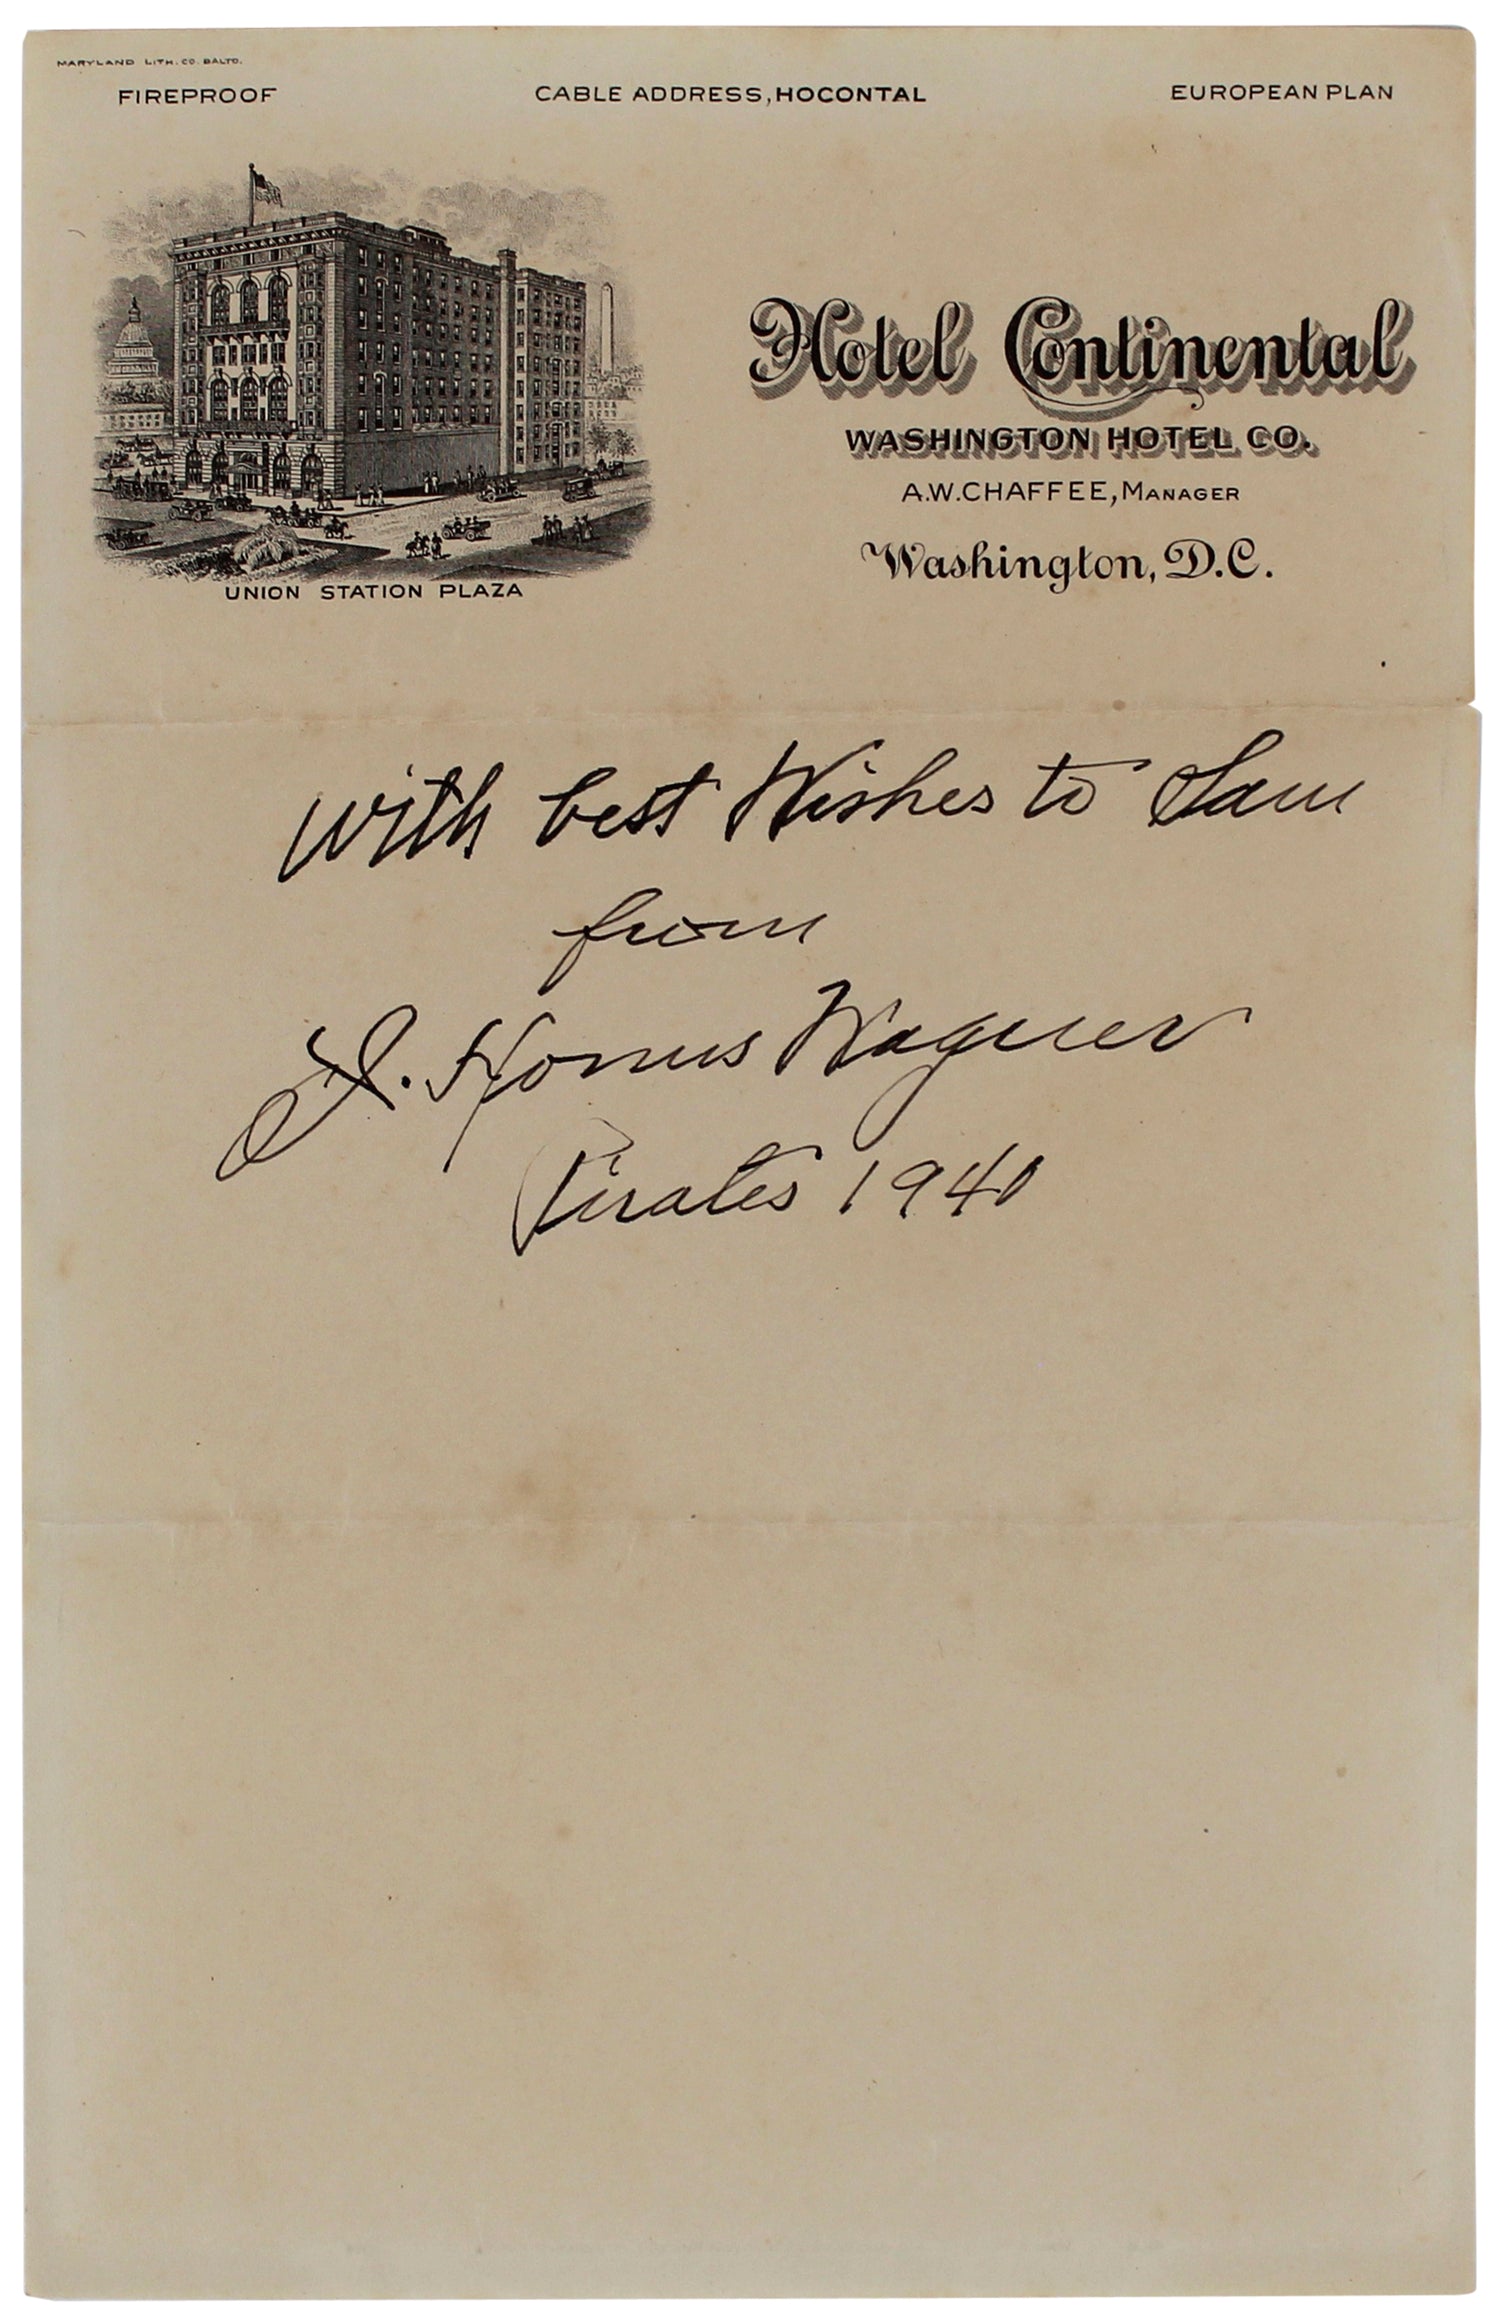 MARYLAND LITH. CO. BALTO.
FIREPROOF CABLE ADDRESS, HOCONTAL EUROPEAN PLAN
Hotel Continental
WASHINGTON HOTEL CO.
A.W. CHAFFEE, MANAGER
Washington, D.C.
UNION STATION PLAZA
With best Wishes to Sam
from
J. Honus Wagner
Pirates 1940